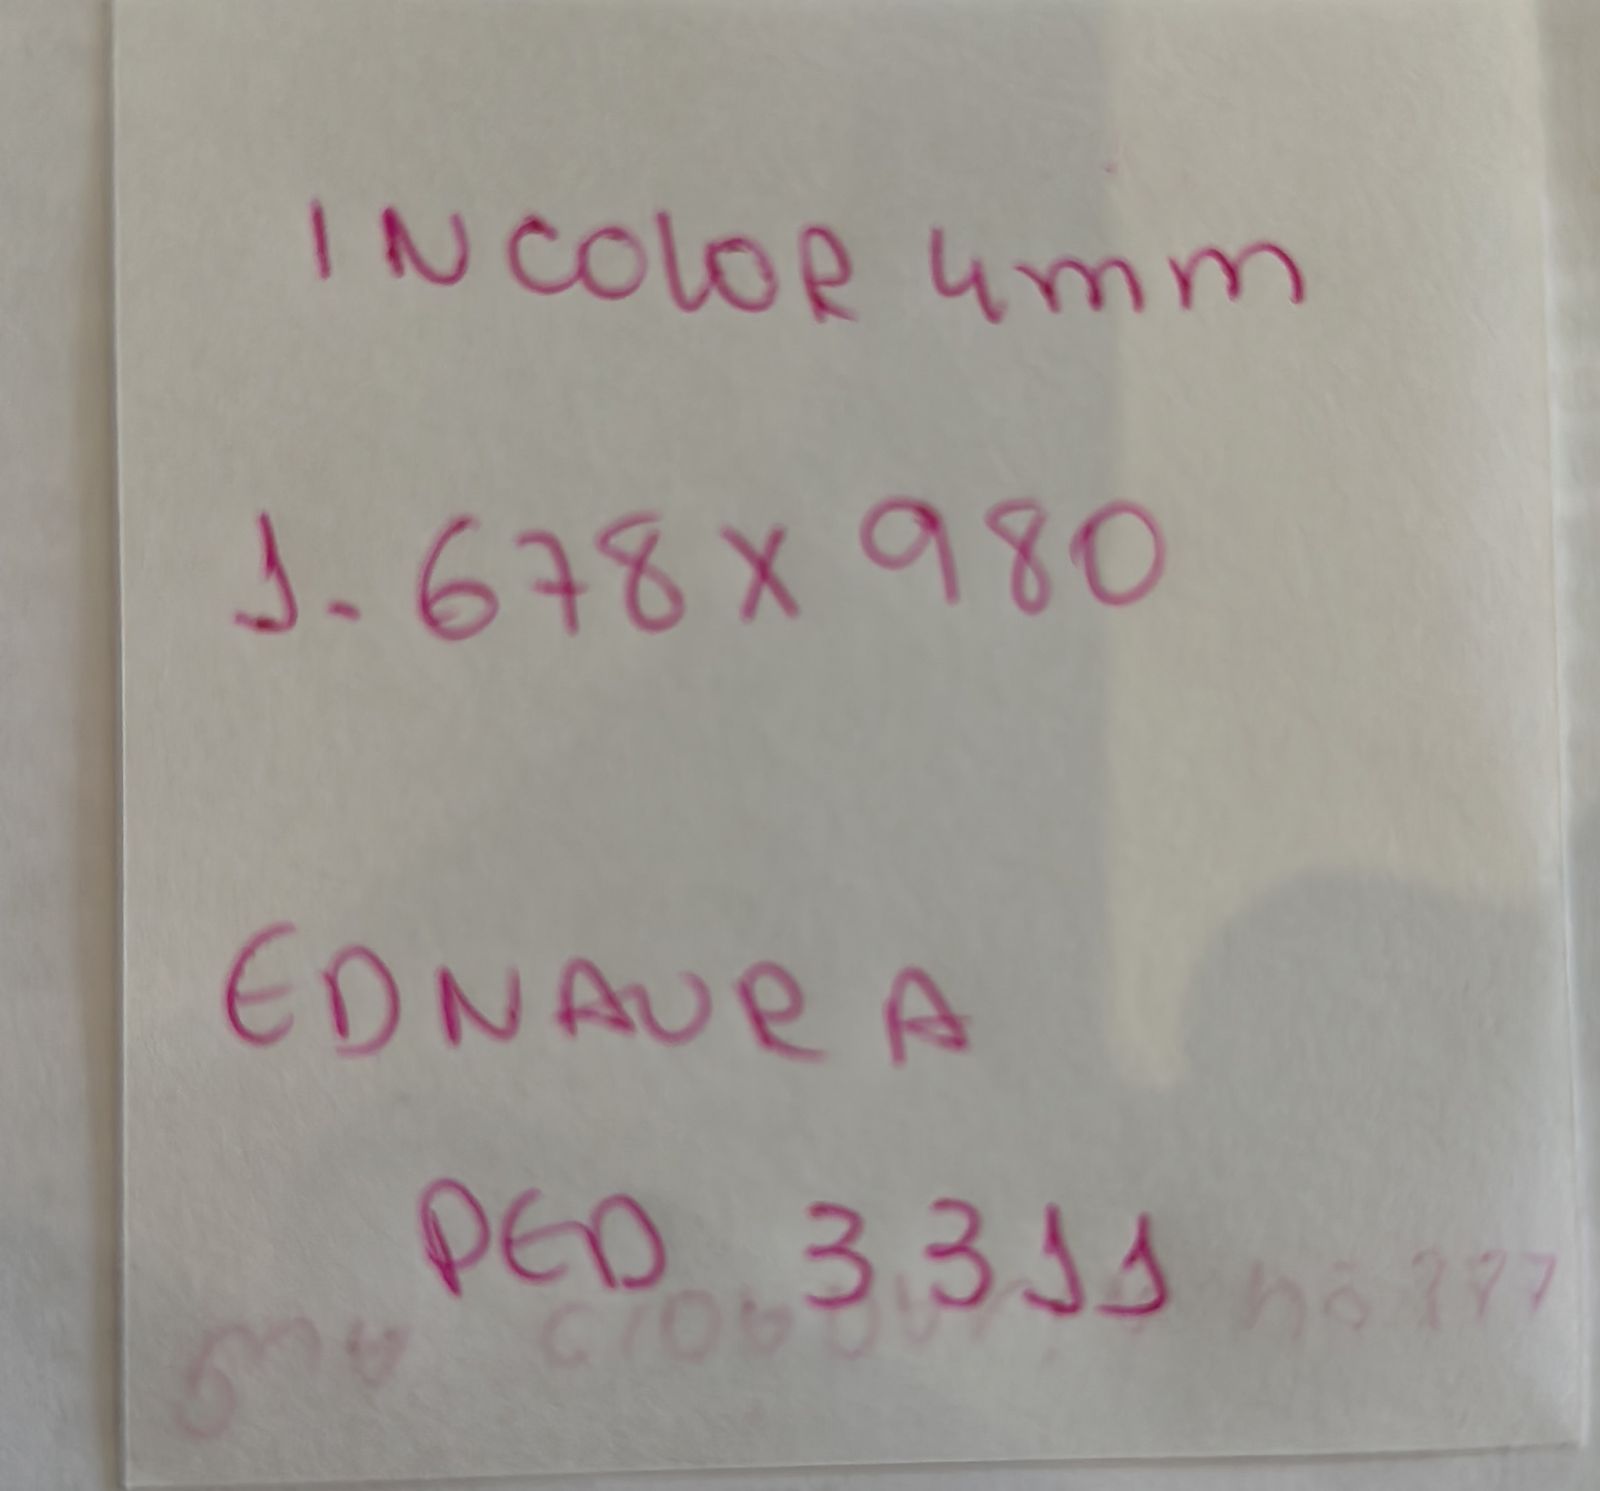 INCOLOR 4mm
1- 678 X 980
EDNAURA
PED 3311